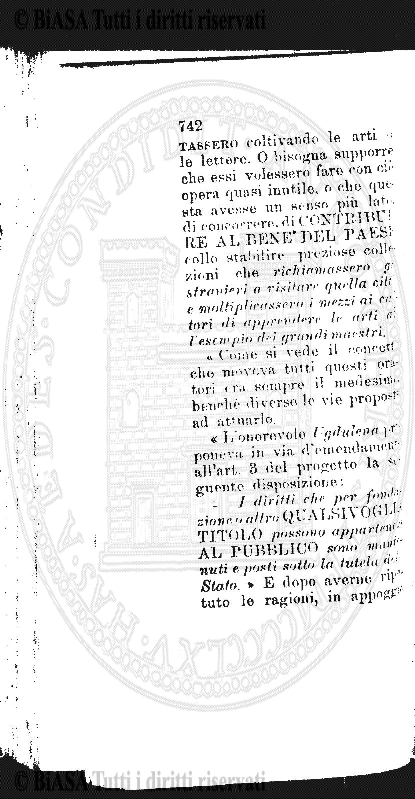 © BiASA Tutti i diritti riservati
742
TASSERO coltivando le arti
le lettere. O bisogna supporre
che essi volessero fare con ciò
opera quasi inutile, o che que-
sta avesse un senso più lat
di concorrere, di CONTRIBU
RE AL BENE DEL PAES
collo stabilire preziose colle
zioni che richiamassero g
stranieri a visitare quella citt
e moltiplicassero i mezzi ai cu
tori di apprendere le arti
l'esempio dei grandi maestri.
« Come si vede il concett
che moveva tutti questi ora
tori era sempre il medesimo
benchè diverse le vie propost
ad attuarlo.
« L'onorevole Ugdulena pr
poneva in via d'emendament
all'art. 3 del progetto la se
guente disposizione:
- I diritti che per fonda
zione o altro QUALSIVOGLI
TITOLO possono apparten
AL PUBBLICO sono mante
nuti e posti sotto la tutela de
Stato. » E dopo averne rip
tuto le ragioni, in appogg
© BiASA Tutti i diritti riservati